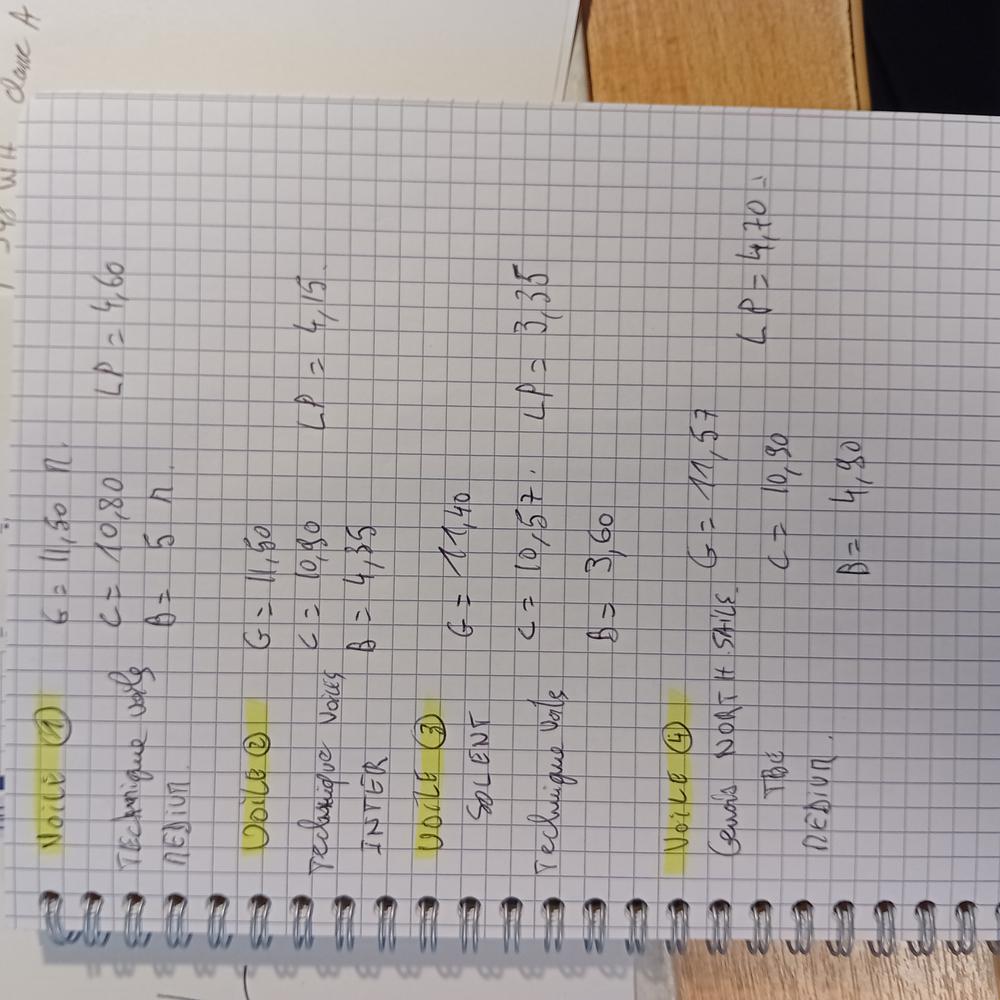 Voile ①
G = 11,50 M.
Technique Voile
C = 10,80 LP = 4,60
MEDIUM.
B = 5 M.
Voile ②
G = 11,50
Technique Voiles
C = 10,90 LP = 4,15.
INTER
B = 4,35
Voile ③
SOLENT
G = 11,40
Technique Voile
C = 10,57. LP = 3,35
B = 3,60
Voile ④
Genois NORTH SAILE
G = 11,57
TBE
C = 10,90 LP = 4,70
MEDIUM.
B = 4,90
WH classe A